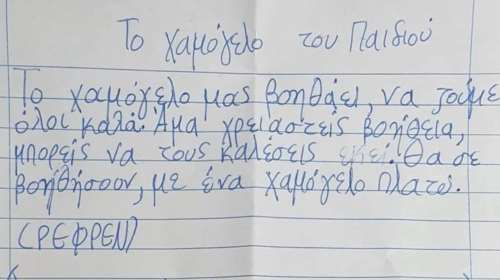 Το χαμόγελο του Παιδιού
Το χαμόγελο μας βοηθάει, να ζούμε
όλοι καλά. Άμα χρειαστείς βοήθεια,
μπορείς να τους καλέσεις εκεί. Θα σε
βοηθήσουν, με ένα χαμόγελο πλατύ.
(ΡΕΦΡΕΝ)